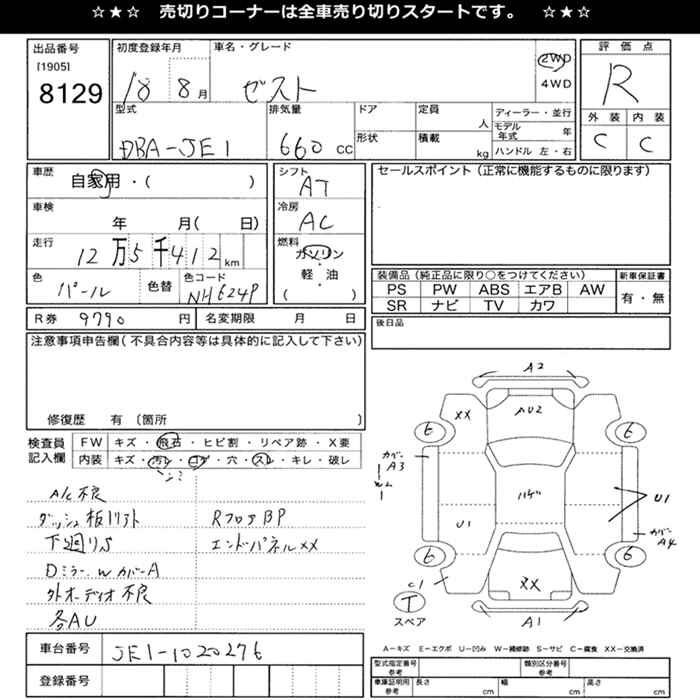 ☆★☆ 売切りコーナーは全車売り切りスタートです。 ☆★☆
出品番号
[1905]
8129
初度登録年月
18 8月
車名・グレード
ゼスト
2WD
4WD
評価点
R
外装 内装
C C
型式
DBA-JE1
排気量
660 CC
ドア
形状
定員
人
積載
kg
ディーラー・並行
モデル年式 年
ハンドル 左・右
車歴
自家用・( )
シフト
AT
車検
年 月( 日)
冷房
AC
走行
12万5千412km
燃料
ガソリン
軽・油
( )
色
パール
色替
色コード
NH624P
R券 9790円
名変期限 月 日
セールスポイント(正常に機能するものに限ります)
装備品(純正品に限り○をつけてください)
新車保証書
PS PW ABS エアB AW
SR ナビ TV カワ
有・無
後日品
注意事項申告欄(不具合内容等は具体的に記入して下さい)
修復歴 有〔箇所 〕
検査員記入欄
FW キズ・飛石・ヒビ割・リペア跡・X要
内装 キズ・汚レ・コゲ・穴・スレ・キレ・破レ
A/C不良
ダッシュ板リフト
下廻りS
DミラーWカバーA
外オーディオ不良
各AU
RフロアBP
エンドパネルXX
A2
XX
AU2
6
6
カバーA3
W1
ハゲ
U1
U1
カバーA4
6
6
C1
XX
T
スペア
A1
A-キズ E-エクボ U-凹み W-補修跡 S-サビ C-腐食 XX-交換済
車台番号 JE1-1020276
登録番号
型式指定番号 参考
類別区分番号 参考
車庫証明用 参考
長さ cm
幅 cm
高さ cm